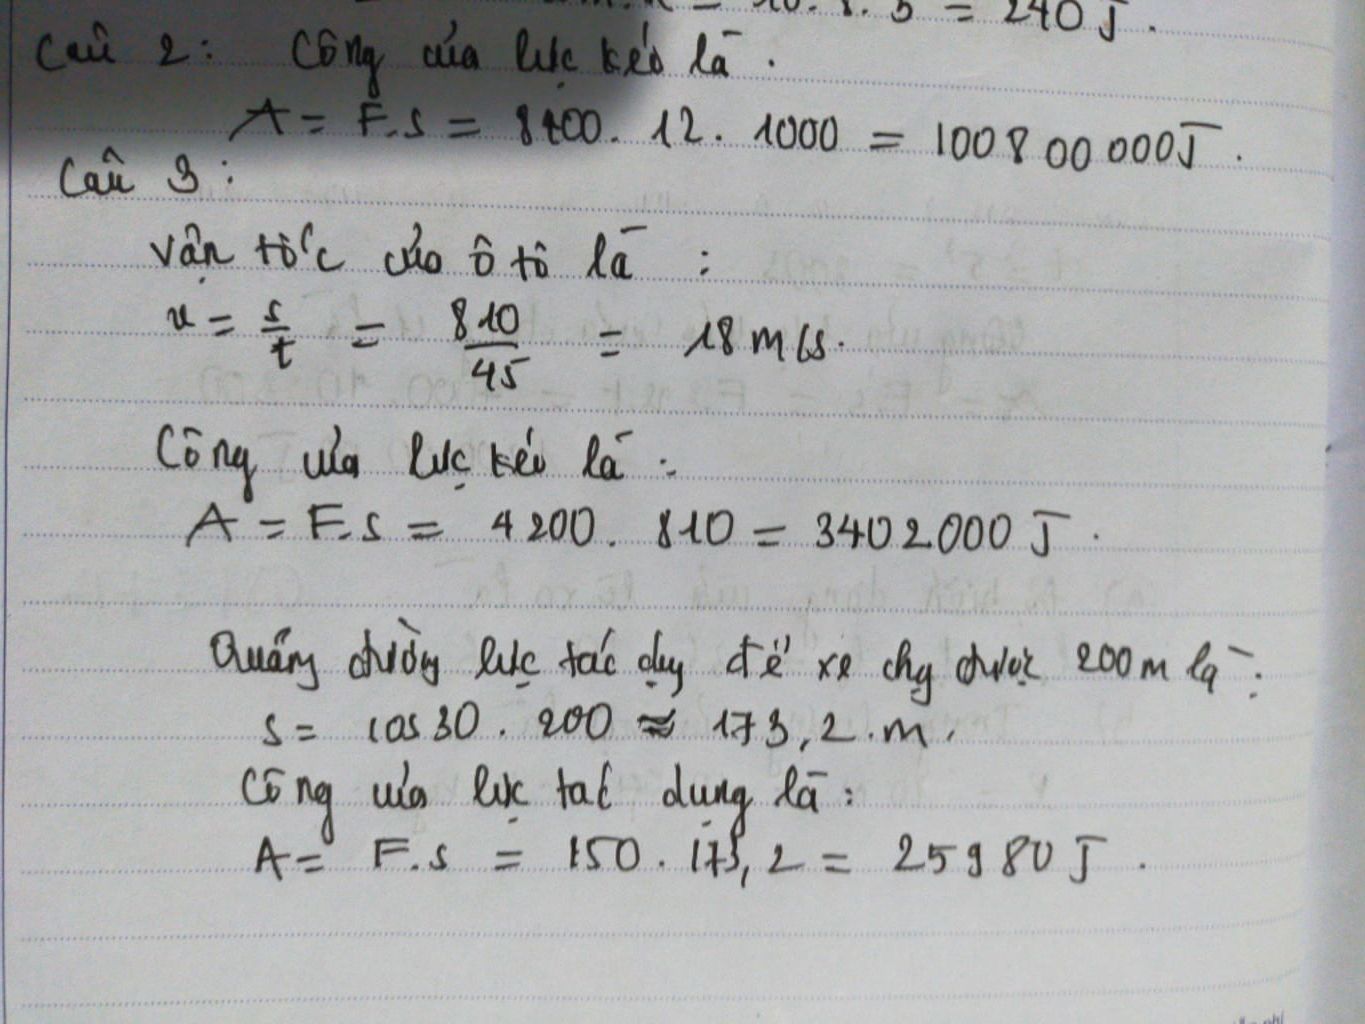 = 10. 8. 3 = 240 J.
Câu 2: Công của lực kéo là.
A = F.s = 8400. 12. 1000 = 100800000J.
Câu 3:
Vận tốc của ô tô là :
v = s/t = 810/45 = 18 m/s.
Công của lực kéo là :
A = F.s = 4200. 810 = 3402000 J.
Quãng đường lực tác dụng để xe chạy được 200m là :
s = cos 30. 200 ≈ 173,2.m.
Công của lực tác dụng là :
A = F.s = 150. 173,2 = 25980 J.